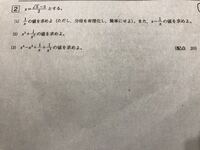 2 x= とする。
(1) 1/x の値を求めよ(ただし、分母を有理化し、簡単にせよ)。また、x-1/x の値を求めよ。
(2) x²+1/x² の値を求めよ。
(3) の値を求めよ。
(配点 20)